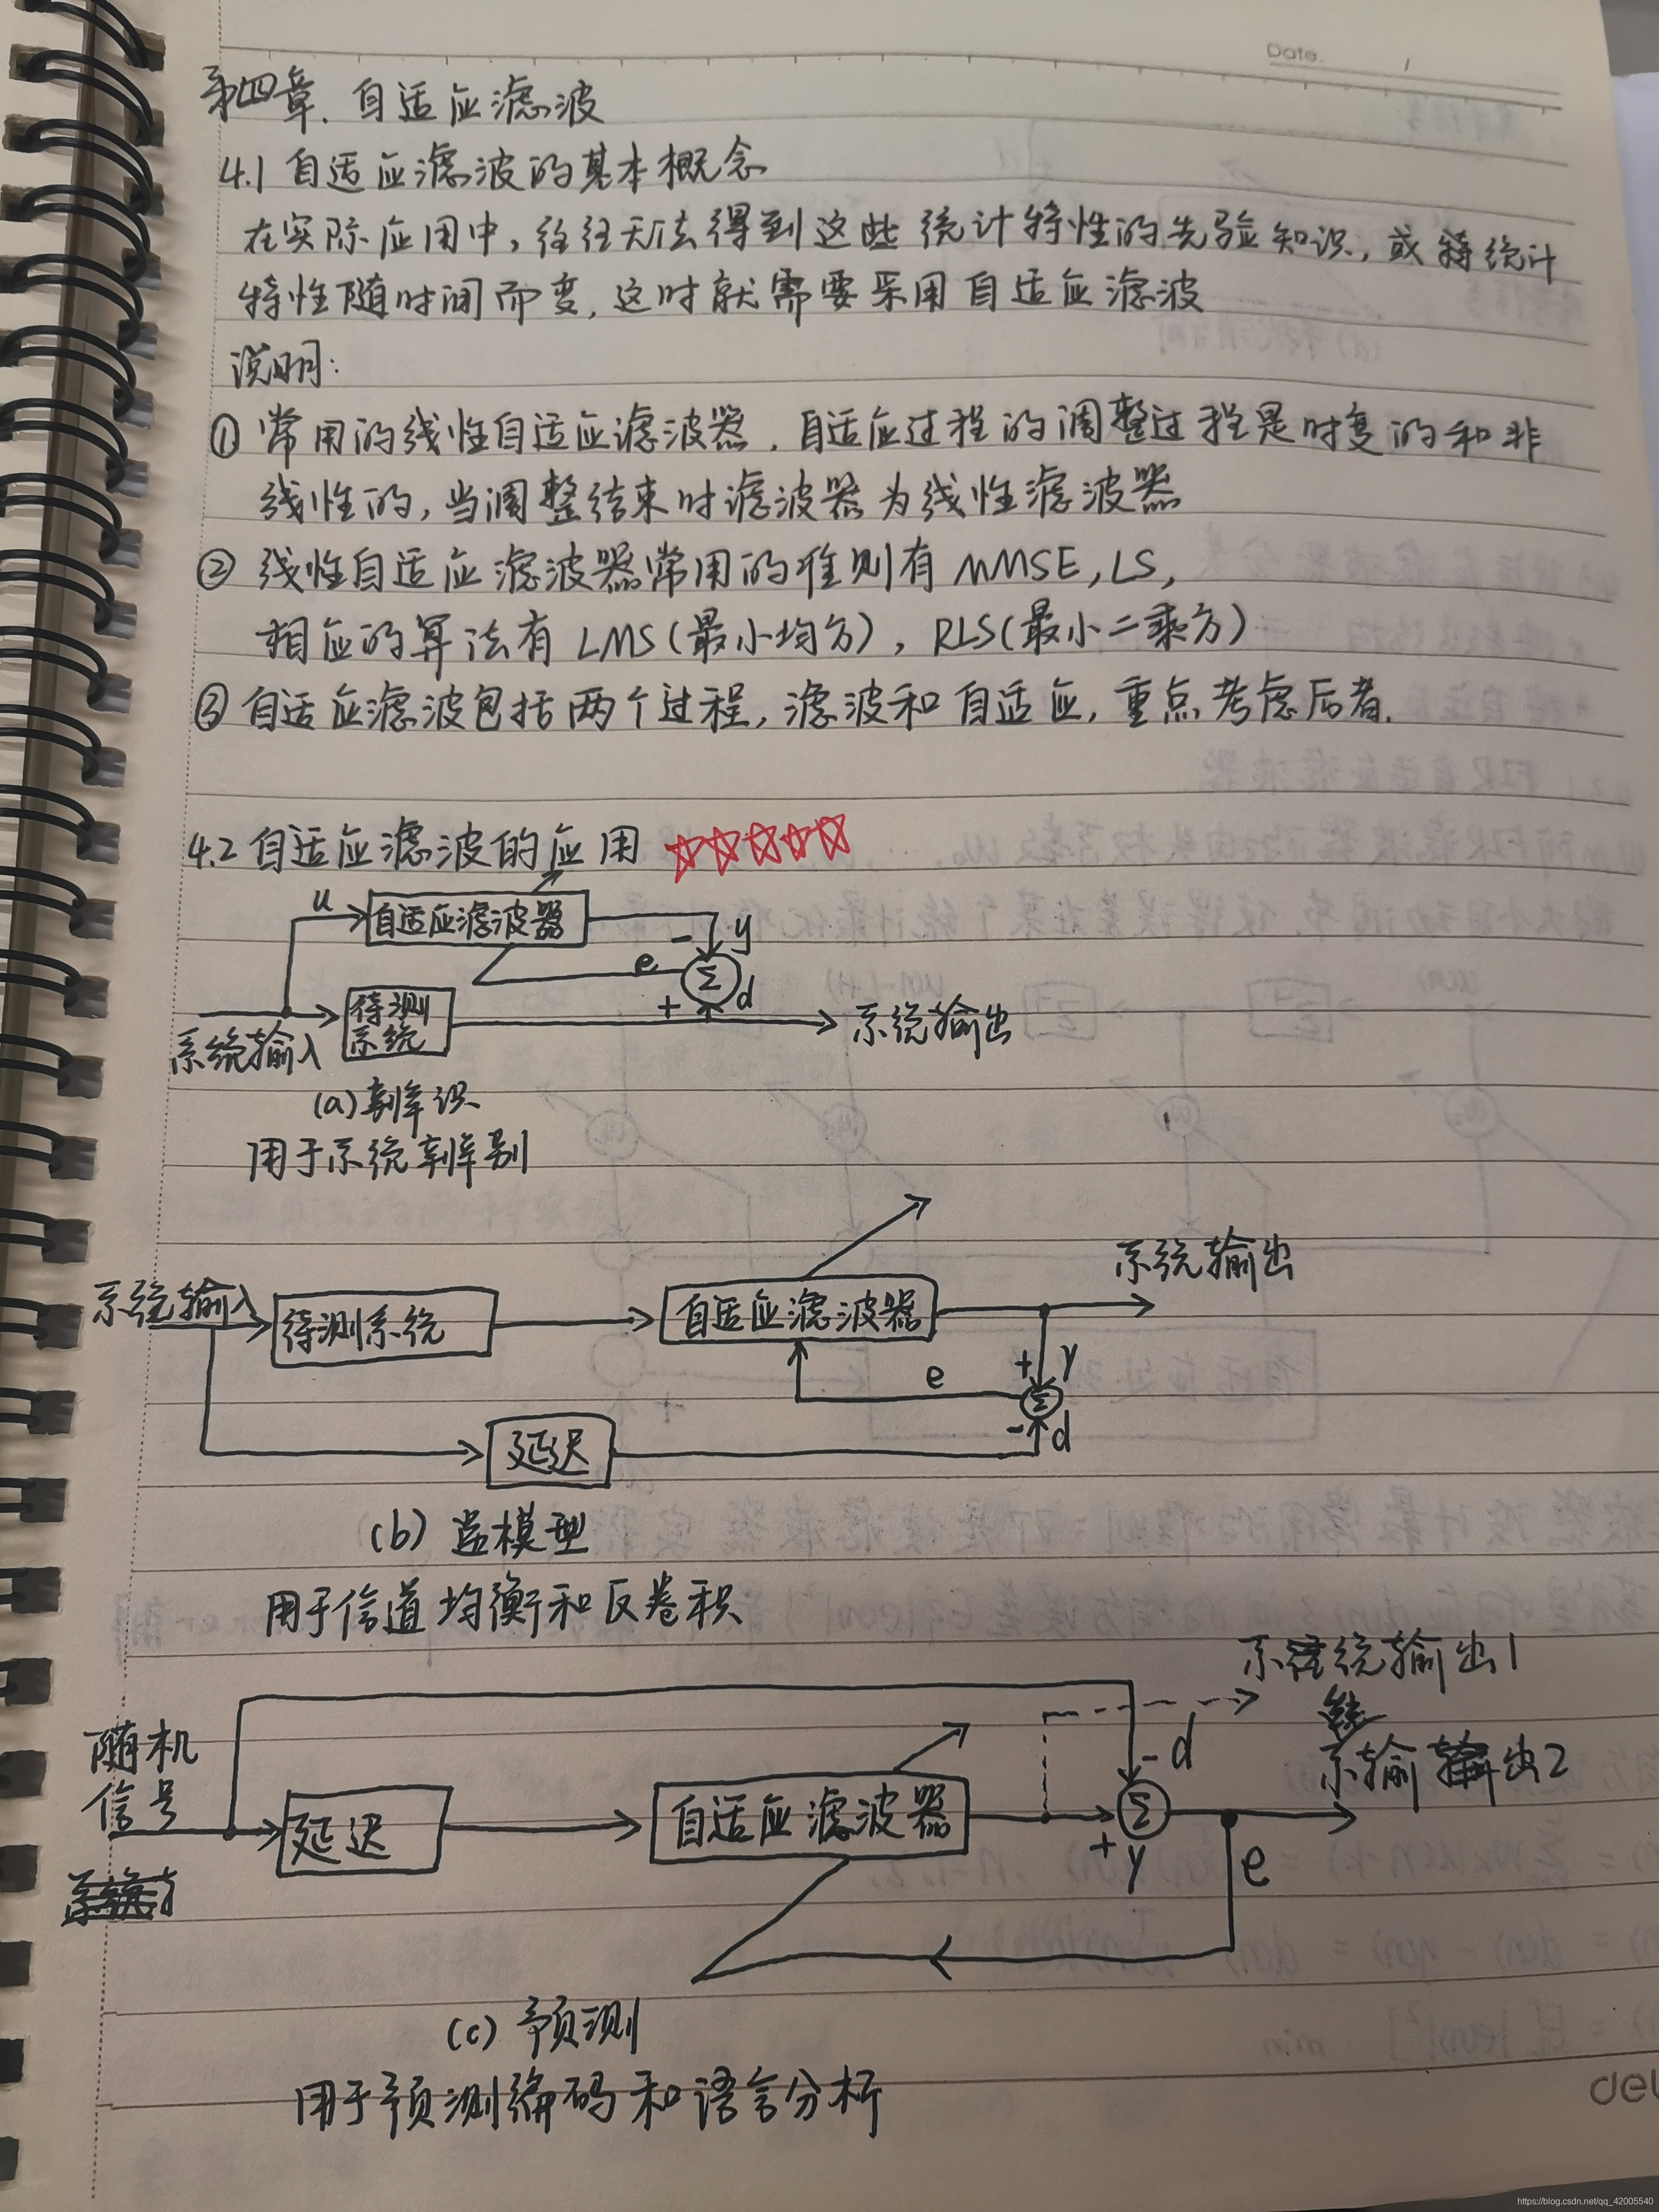 Date.
第四章. 自适应滤波
4.1 自适应滤波的基本概念
在实际应用中, 往往无法得到这些统计特性的先验知识, 或统计
特性随时间而变, 这时就需要采用自适应滤波
说明:
① 常用的线性自适应滤波器. 自适应过程的调整过程是时变的和非
线性的, 当调整结束时滤波器为线性滤波器
② 线性自适应滤波器常用的准则有 MMSE, LS,
相应的算法有 LMS(最小均方), RLS(最小二乘方)
③ 自适应滤波包括两个过程, 滤波和自适应, 重点考虑后者.
4.2 自适应滤波的应用 ☆☆☆☆☆
u 自适应滤波器
- y
e Σ d
+
系统输入 待测
系统 系统输出
(a) 辨识
用于系统辨别
系统输出
系统输入 待测系统 自适应滤波器
+ y
e Σ
- d
延迟
(b) 逆模型
用于信道均衡和反卷积
系统输出1
随机
信号
- d
系输出2
延迟 自适应滤波器 Σ
+ y e
(c) 预测
用于预测编码和语言分析
https://blog.csdn.net/qq_42005540